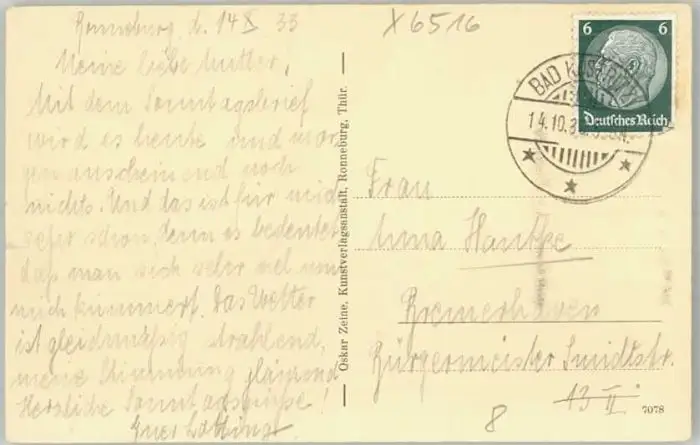 Ronneburg, d. 14 X 33
X 6516
Meine liebe Mutter,
Mit dem Sonntagsbrief
wird es heute und mor-
gen anscheinend noch
nichts. Und das ist für mich
sehr schon, denn es bedeutet
daß man sich sehr viel um
mich kümmert. Das Wetter
ist gleichmäßig strahlend,
meine Stimmung glänzend
Herzliche Sonntagsgrüße!
Oskar Zeine, Kunstverlagsanstalt, Ronneburg, Thür.
6 6
Deutsches Reich
BAD
14.10.3
Frau
Anna
Bremerhaven
Bürgermeister Smidtstr.
13 II
8
7078